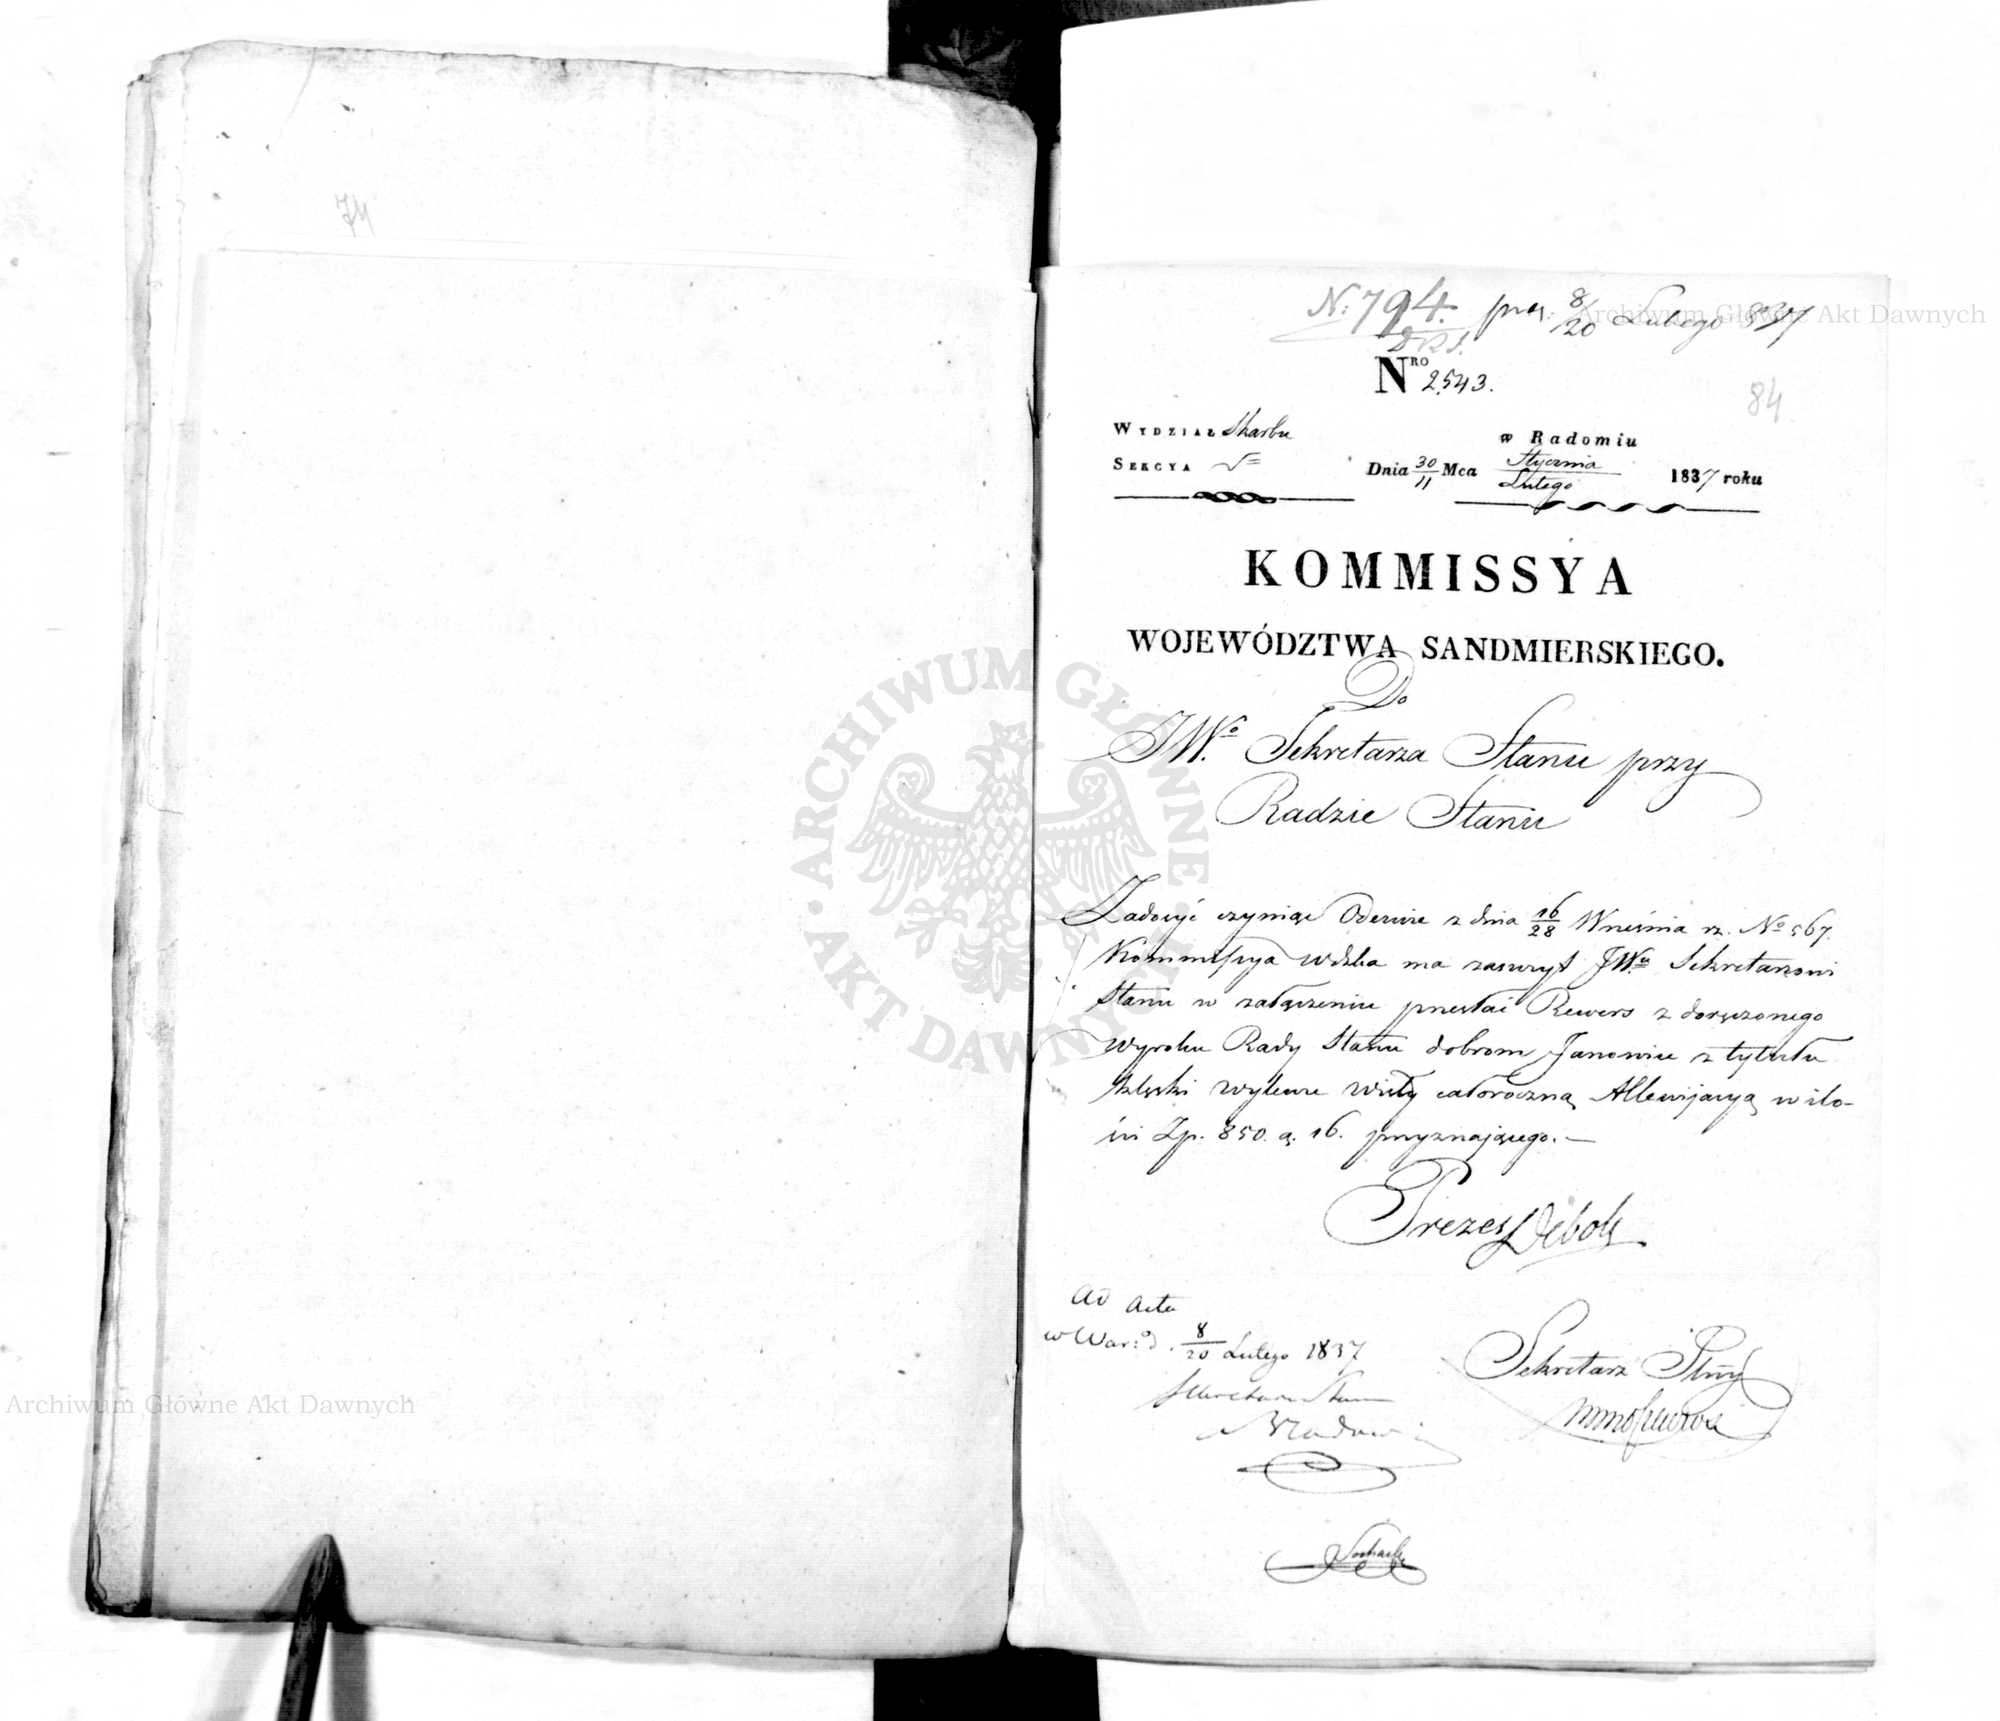 74
N: 794. prez: 8/20 Lutego 837
D.R.S.
NRO 2543.
84
WYDZIAŁ Skarbu
w Radomiu
SEKCYA V
Dnia 30/11 Mca Stycznia/Lutego 1837 roku
KOMMISSYA
WOJEWÓDZTWA SANDMIERSKIEGO.
Do
JWo Sekretarza Stanu przy
Radzie Stanu
Zadosyć czyniąc Odezwie z dnia 16/28 Września rz. No 567.
Kommissya Wdzka ma zaszczyt JWu Sekretarzowi
Stanu w załączeniu przesłać Rewers z doręczonego
Wyroku Rady Stanu dobrom Janowiec z tytułu
klęski wylewu Wisły całoroczną Allewijacyą w ilo-
ści Zp. 850. g. 16. przyznającego. —
Prezes Deboli
Ad Acta
w War: d. 8/20 Lutego 1837
Sekretarz Stanu
Sekretarz Jlny
Archiwum Główne Akt Dawnych
Archiwum Główne Akt Dawnych
ARCHIWUM GŁÓWNE · AKT DAWNYCH ·